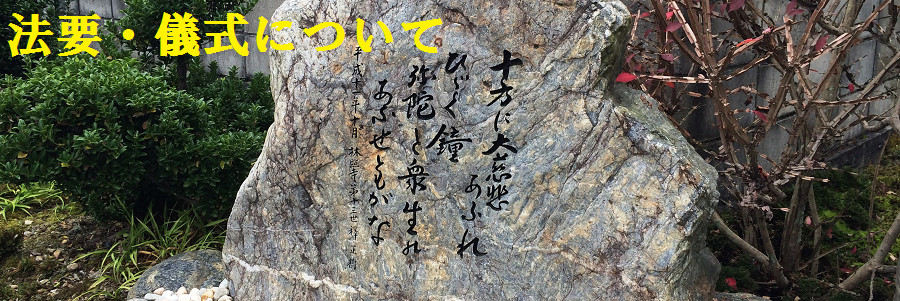 法要・儀式について
十方に大慈悲
あふれ
ひびく鐘
弥陀と衆生の
あふせともがな
平成十二年十月